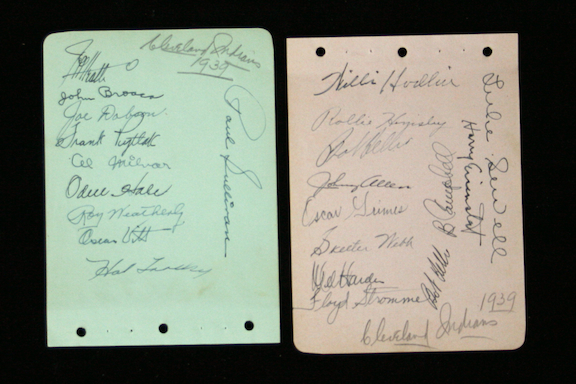 Cleveland Indians
1939
John Broaca
Joe Dobson
Frank
Al Milnar
Odell Hale
Roy Weatherly
Oscar Vitt
Paul Sullivan
Willis Hudlin
Rollie Hemsley
Johnny Allen
Oscar Grimes
Skeeter Webb
Mel Harder
Floyd Stromme
Bob Feller
B Campbell
Harry Eisenstat
Luke Sewell
1939
Cleveland Indians